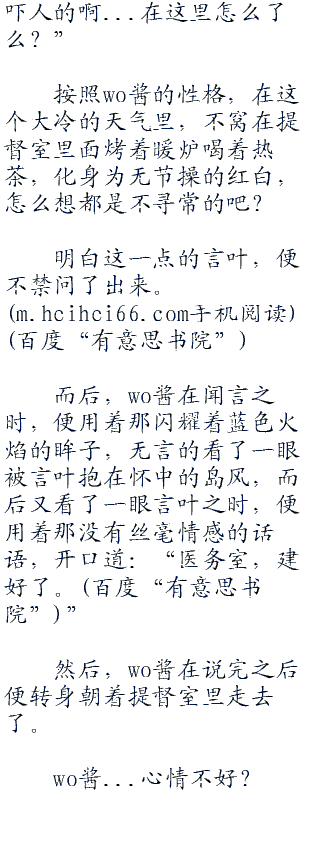 吓人的啊...在这里怎么了
么？”
按照wo酱的性格，在这
个大冷的天气里，不窝在提
督室里面烤着暖炉喝着热
茶，化身为无节操的红白，
怎么想都是不寻常的吧？
明白这一点的言叶，便
不禁问了出来。
(m.hcihci66.com手机阅读)
(百度“有意思书院”)
而后，wo酱在闻言之
时，便用着那闪耀着蓝色火
焰的眸子，无言的看了一眼
被言叶抱在怀中的岛风，而
后又看了一眼言叶之时，便
用着那没有丝毫情感的话
语，开口道：“医务室，建
好了。(百度“有意思书
院”)”
然后，wo酱在说完之后
便转身朝着提督室里走去
了。
wo酱...心情不好？